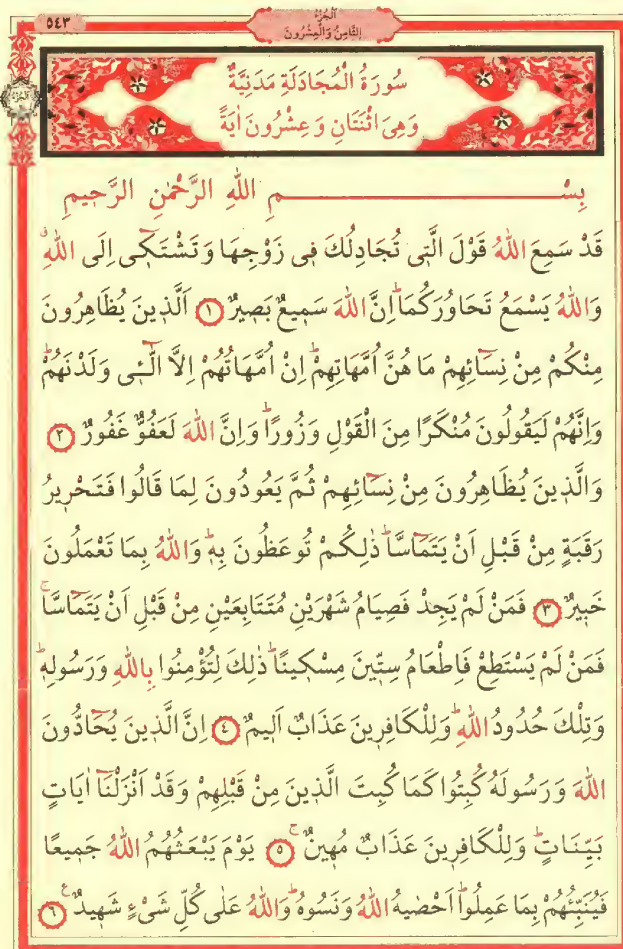 ٥٤٣
اَلْجُزْءُ
الثَّامِنُ وَالْعِشْرُونَ
سُورَةُ الْمُجَادَلَةِ مَدَنِيَّةٌ
وَهِيَ اثْنَتَانِ وَعِشْرُونَ اٰيَةً
بِسْمِ اللهِ الرَّحْمٰنِ الرَّحِيمِ
قَدْ سَمِعَ اللهُ قَوْلَ الَّتِي تُجَادِلُكَ فِي زَوْجِهَا وَتَشْتَكِٓي اِلَى اللهِۗ
وَاللهُ يَسْمَعُ تَحَاوُرَكُمَاۜ اِنَّ اللهَ سَمِيعٌ بَصِيرٌ ١ اَلَّذِينَ يُظَاهِرُونَ
مِنْكُمْ مِنْ نِسَٓائِهِمْ مَا هُنَّ اُمَّهَاتِهِمْۜ اِنْ اُمَّهَاتُهُمْ اِلَّا الّٰٓئِي وَلَدْنَهُمْۜ
وَاِنَّهُمْ لَيَقُولُونَ مُنْكَرًا مِنَ الْقَوْلِ وَزُورًاۜ وَاِنَّ اللهَ لَعَفُوٌّ غَفُورٌ ٢
وَالَّذِينَ يُظَاهِرُونَ مِنْ نِسَٓائِهِمْ ثُمَّ يَعُودُونَ لِمَا قَالُوا فَتَحْرِيرُ
رَقَبَةٍ مِنْ قَبْلِ اَنْ يَتَمَٓاسَّاۜ ذٰلِكُمْ تُوعَظُونَ بِهِۜ وَاللهُ بِمَا تَعْمَلُونَ
خَبِيرٌ ٣ فَمَنْ لَمْ يَجِدْ فَصِيَامُ شَهْرَيْنِ مُتَتَابِعَيْنِ مِنْ قَبْلِ اَنْ يَتَمَٓاسَّاۚ
فَمَنْ لَمْ يَسْتَطِعْ فَاِطْعَامُ سِتِّينَ مِسْكِينًاۜ ذٰلِكَ لِتُؤْمِنُوا بِاللهِ وَرَسُولِهِۜ
وَتِلْكَ حُدُودُ اللهِۜ وَلِلْكَافِرِينَ عَذَابٌ اَلِيمٌ ٤ اِنَّ الَّذِينَ يُحَٓادُّونَ
اللهَ وَرَسُولَهُ كُبِتُوا كَمَا كُبِتَ الَّذِينَ مِنْ قَبْلِهِمْ وَقَدْ اَنْزَلْنَٓا اٰيَاتٍ
بَيِّنَاتٍۜ وَلِلْكَافِرِينَ عَذَابٌ مُهِينٌۚ ٥ يَوْمَ يَبْعَثُهُمُ اللهُ جَمِيعًا
فَيُنَبِّئُهُمْ بِمَا عَمِلُواۜ اَحْصٰيهُ اللهُ وَنَسُوهُۜ وَاللهُ عَلٰى كُلِّ شَيْءٍ شَهِيدٌ۟ ٦